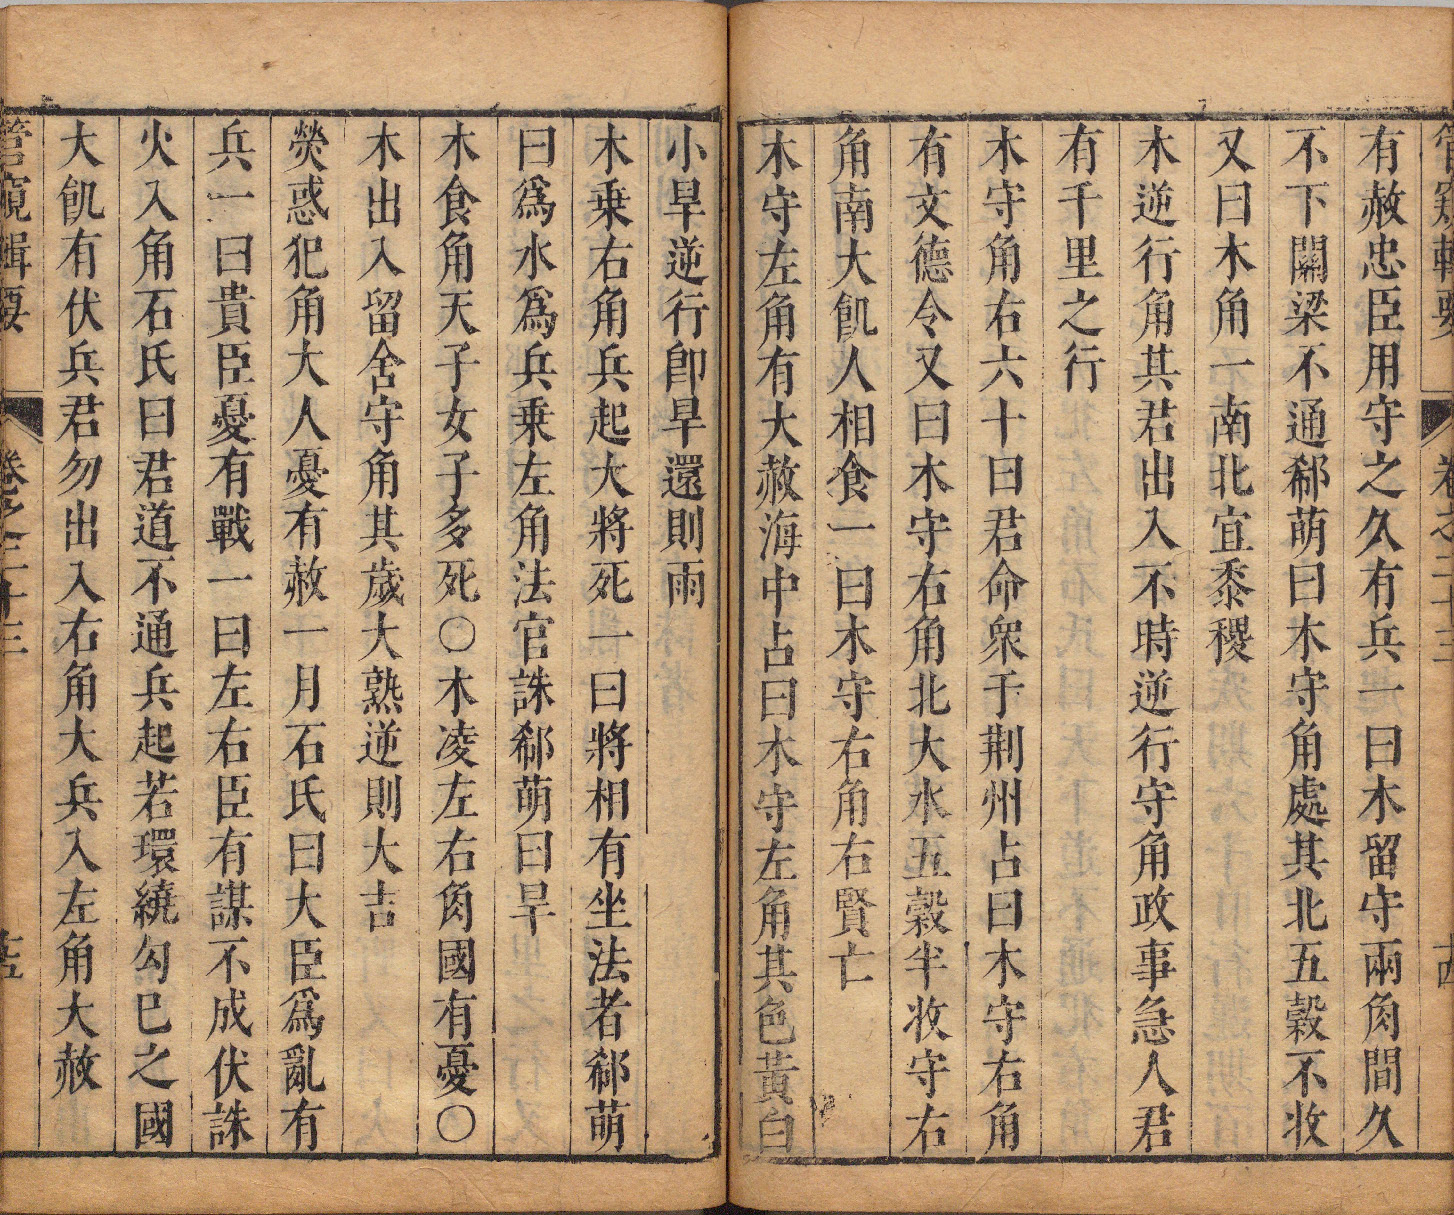 管窺輯要 卷之二十三 十四
有赦忠臣用守之久有兵一曰木留守兩角間久
不下關梁不通郗萌曰木守角處其北五穀不收
又曰木角一南北宜黍稷
木逆行角其君出入不時逆行守角政事急人君
有千里之行
木守角右六十日君命衆于荆州占曰木守右角
有文德令又曰木守右角北大水五穀半收守右
角南大飢人相食一曰木守右角右賢亡
木守左角有大赦海中占曰木守左角其色黃白
小旱逆行卽旱還則雨
木乗右角兵起大將死一曰將相有坐法者郗萌
曰爲水爲兵乗左角法官誅郗萌曰旱
木食角天子女子多死〇木凌左右角國有憂〇
木出入留舍守角其歲大熟逆則大吉
熒惑犯角大人憂有赦一月石氏曰大臣爲亂有
兵一曰貴臣憂有戰一曰左右臣有謀不成伏誅
火入角石氏曰君道不通兵起若環繞勾巳之國
大飢有伏兵君勿出入右角大兵入左角大赦
管窺輯要 卷之二十三 十五